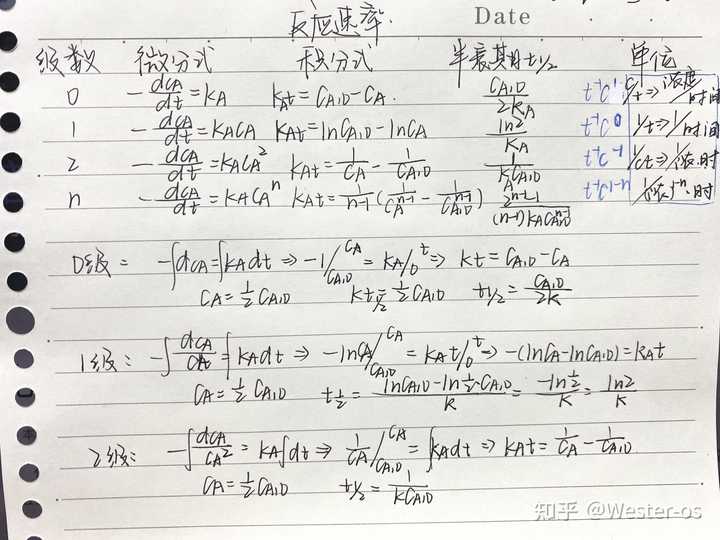 反应速率. Date
级数 微分式 积分式 半衰期t1/2 单位
0 -dCA/dt=kA kAt=CA,0-CA. CA,0/2kA t⁻¹C¹ C/t⇒浓度/时间
1 -dCA/dt=kACA kAt=lnCA,0-lnCA ln2/kA t⁻¹C⁰ 1/t⇒1/时间
2 -dCA/dt=kACA² kAt=1/CA-1/CA,0 1/kCA,0 t⁻¹C⁻¹ 1/Ct⇒1/浓·时
n -dCA/dt=kACAⁿ kAt=1/n-1(1/CAⁿ⁻¹-1/CA,0ⁿ⁻¹) 2ⁿ⁻¹-1/(n-1)kACA,0ⁿ⁻¹ t⁻¹C¹⁻ⁿ
0级: -∫dCA=∫kAdt⇒-1/CA,0 CA=kA/0 t⇒ kt=CA,0-CA
CA=1/2CA,0 kt1/2=1/2CA,0 t1/2=CA,0/2k
1级: -∫dCA/CA=∫kAdt⇒-lnCA/CA,0 CA=kAt/0 t⇒-(lnCA-lnCA,0)=kAt
CA=1/2CA,0 t1/2=lnCA,0-ln1/2CA,0/k=-ln1/2/k=ln2/k
2级: -∫dCA/CA²=kA∫dt⇒1/CA/CA,0 CA=∫kAdt⇒kAt=1/CA-1/CA,0
CA=1/2CA,0 t1/2=1/kCA,0
知乎 @Wester-os